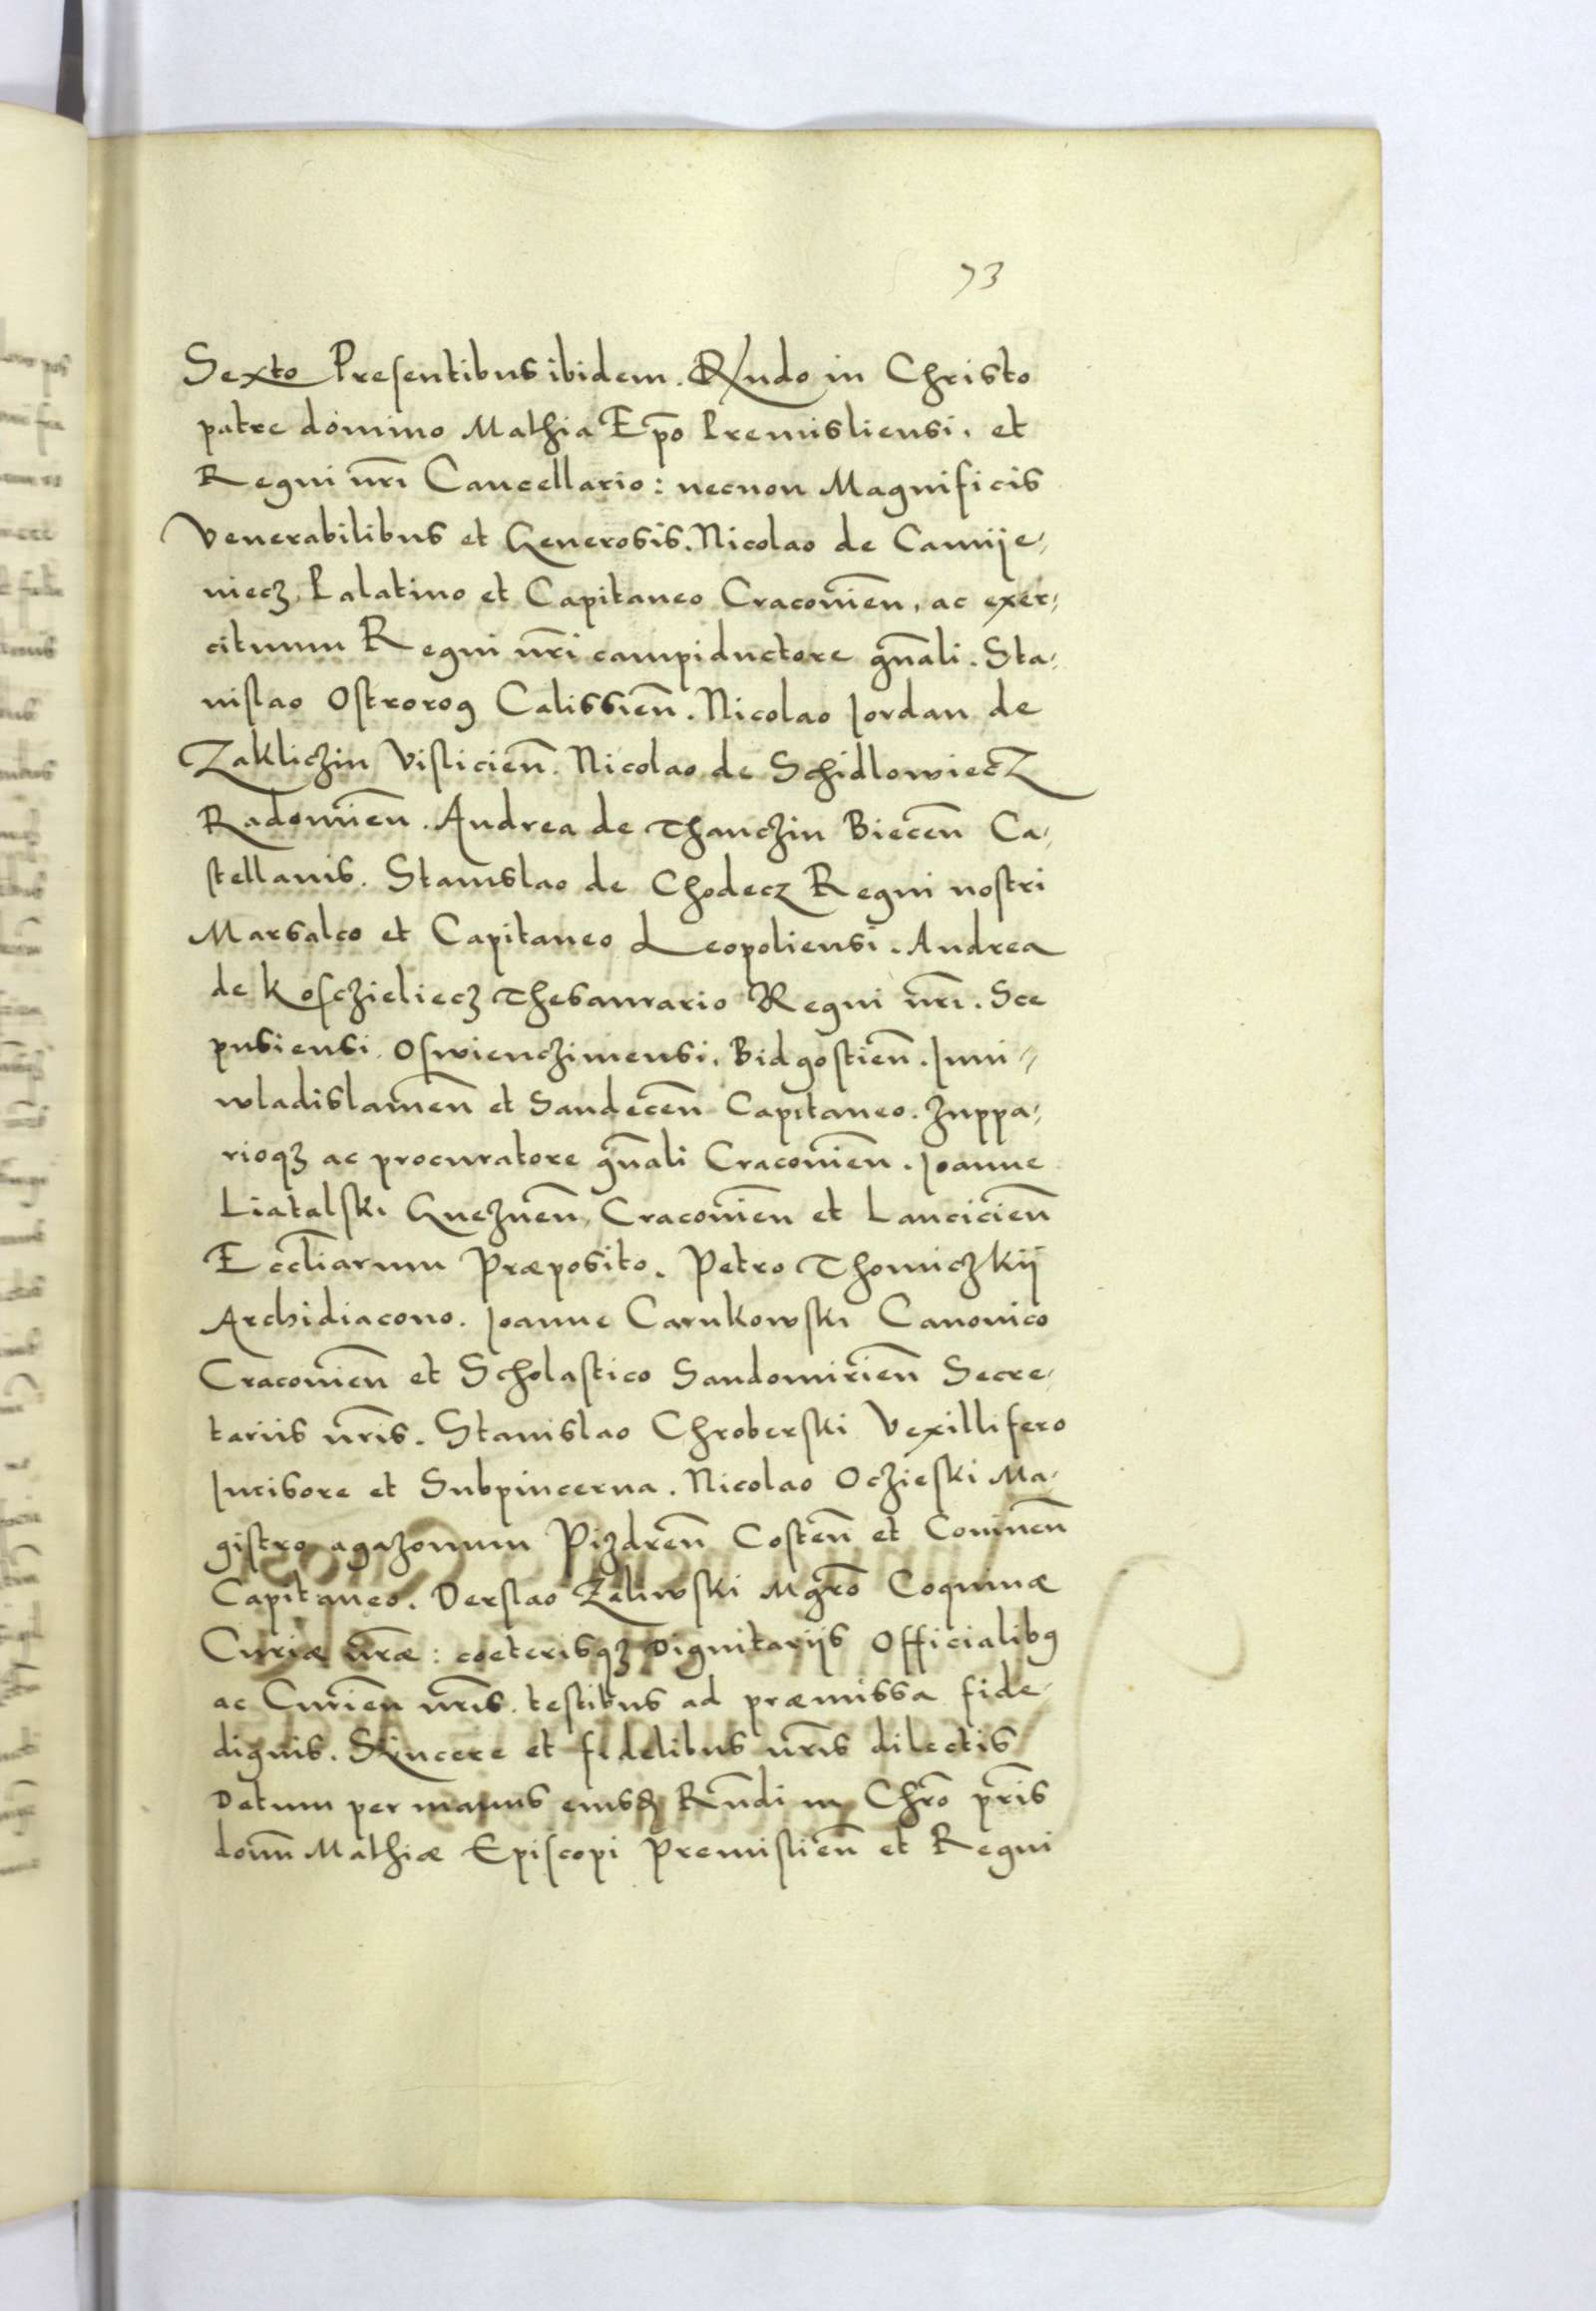 73
Sexto Presentibus ibidem. Rndo in Christo
patre domino Mathia Ep̄o Premisliensi, et
Regni nr̄i Cancellario: necnon Magnificis
Venerabilibus et Generosis. Nicolao de Camije-
niecz Palatino et Capitaneo Cracovien̄, ac exer-
cituum Regni nr̄i campiductore gn̄ali. Sta-
nislao Ostrorog Calissien̄. Nicolao Jordan de
Zakliczin Vislicien̄. Nicolao de Schidlowiecz
Radomien̄. Andrea de Thanczin Biecen̄ Ca-
stellanis. Stanislao de Chodecz Regni nostri
Marsalco et Capitaneo Leopoliensi. Andrea
de Kosczieliecz Thesaurario Regni nr̄i. Sce
pusiensi, Oswienczimensi, Bidgostien̄. Juni-
wladislavien̄ et Sandecen̄ Capitaneo. Zuppa-
rioqz ac procuratore gn̄ali Cracovien̄. Joanne
Liatalski Gneznen̄, Cracovien̄ et Lancicien̄
Eccl̄iarum Præposito. Petro Thomiczkij
Archidiacono. Joanne Carnkowski Canonico
Cracovien̄ et Scholastico Sandomirien̄ Secre-
tariis nr̄is. Stanislao Chroberski Vexillifero
Incisore et Subpincerna. Nicolao Oczieski Ma-
gistro agazonum Pizdren̄ Costen̄ et Coninen̄
Capitaneo. Derslao Zaliwski Mgr̄o Coquinæ
Curiæ nr̄æ: coeterisqz Dignitariis Officialibq
ac Curien̄ nr̄is. testibus ad præmissa fide-
dignis. Sincere et fidelibus nr̄is dilectis
Datum per manus eiusd Rn̄di in Chr̄o pr̄is
domn̄ Mathiæ Episcopi Premislien̄ et Regni